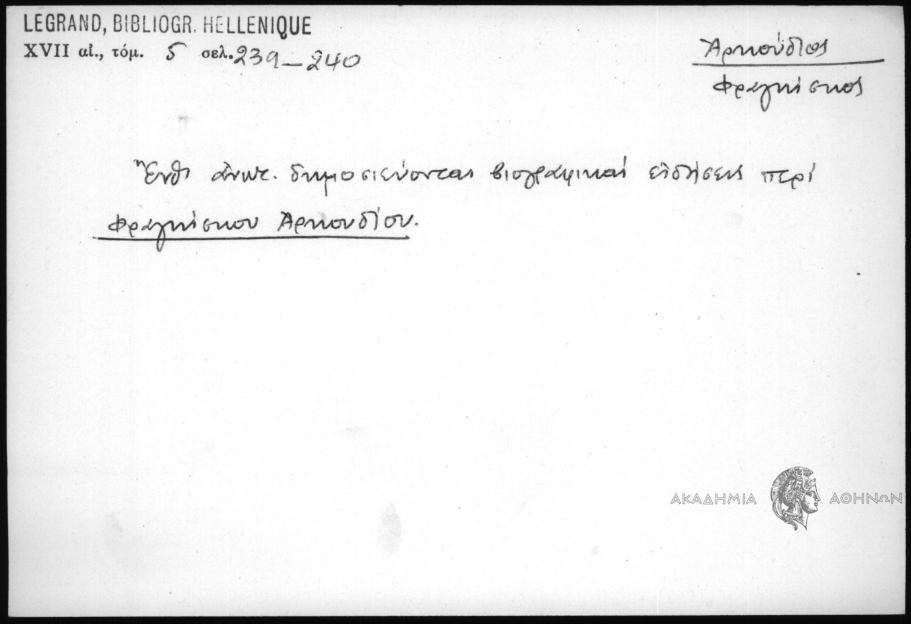 LEGRAND, BIBLIOGR. HELLENIQUE
XVII αἰ., τόμ. 5 σελ. 239-240
Ἀρκούδιος
Φραγκίσκος
Ἔνθ' ἀνωτ. δημοσιεύονται βιογραφικαί εἰδήσεις περί
Φραγκίσκου Ἀρκουδίου.
ΑΚΑΔΗΜΙΑ ΑΘΗΝΩΝ